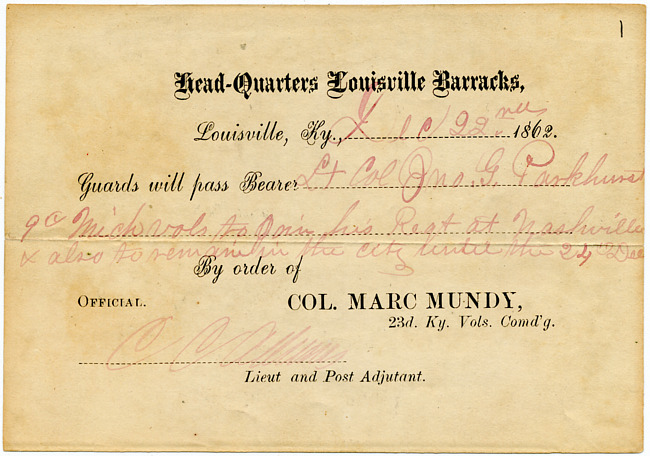 1
Head-Quarters Louisville Barracks,
Louisville, Ky., Dec 22nd 1862.
Guards will pass Bearer Lt Col Jno. G. Parkhurst
9th Mich Vols to join his Regt at Nashville
& also to remain in the city until the 24th Dec
By order of
OFFICIAL. COL. MARC MUNDY,
23d. Ky. Vols. Comd'g.
Lieut and Post Adjutant.